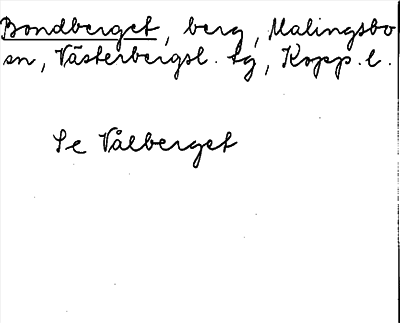 Bondberget, berg, Malingsbo
sn, Västerbergsl. tg, Kopp. l.
Se Vålberget